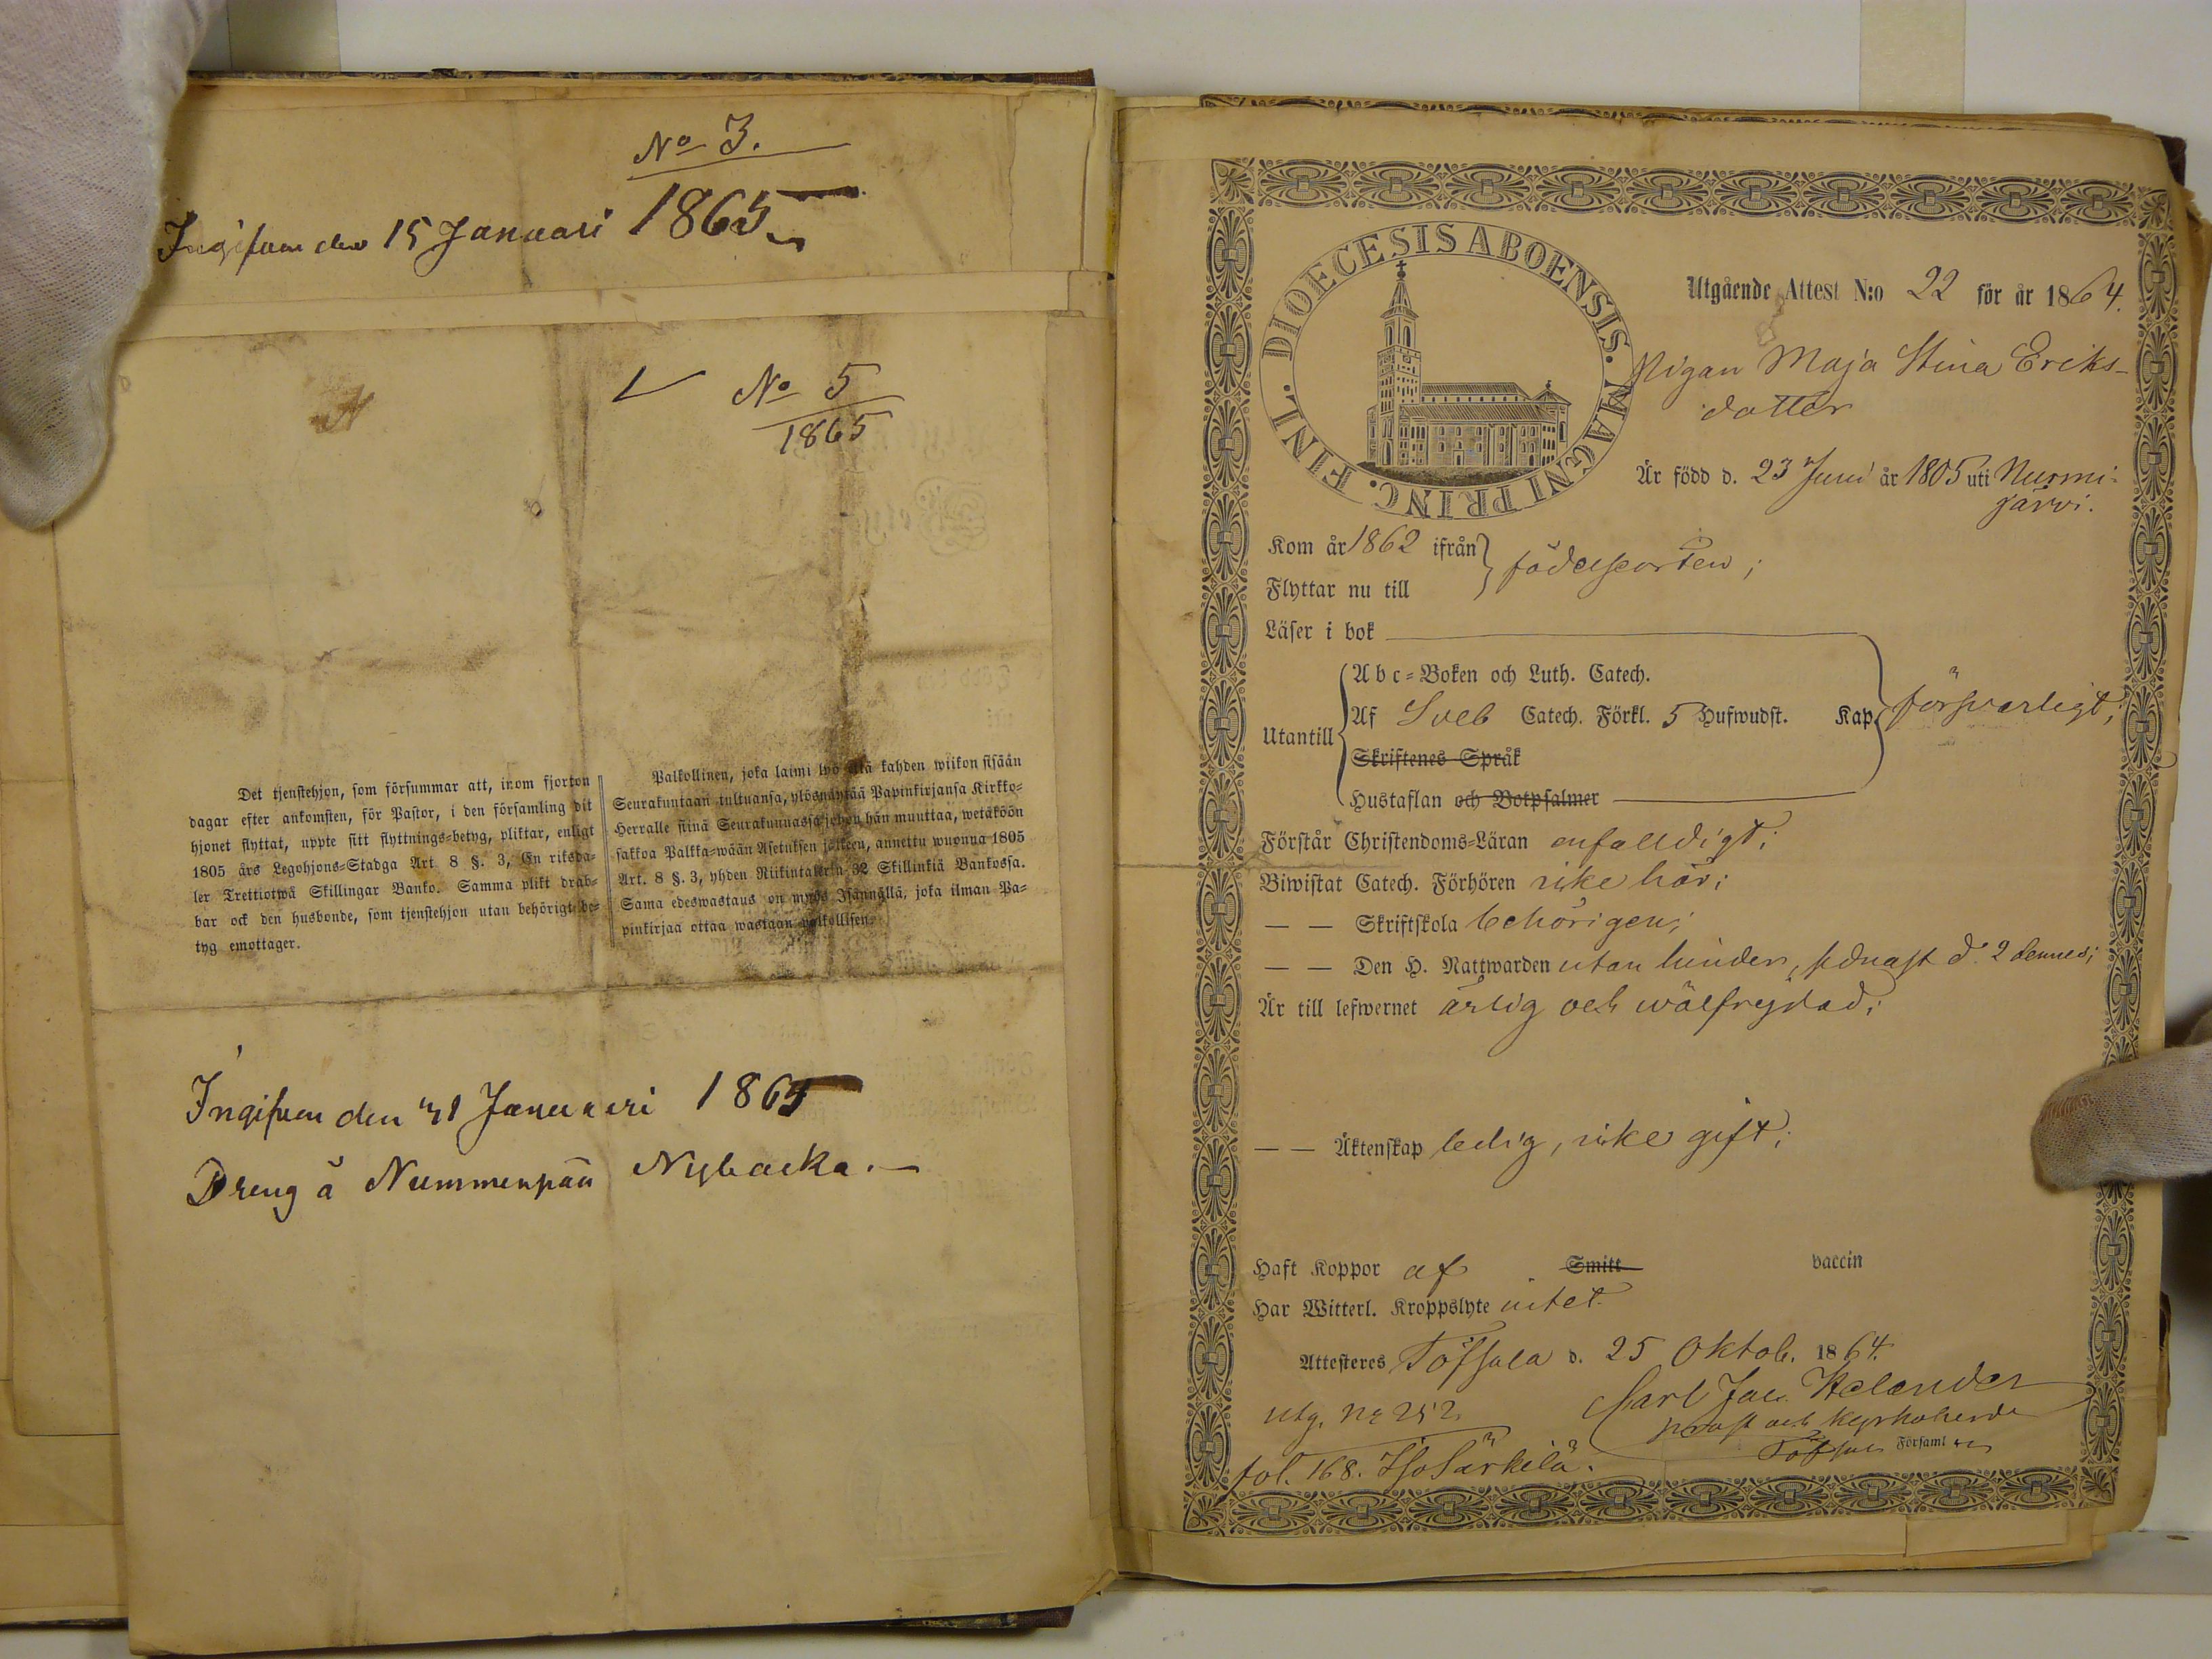 No 3.
Ingifven den 15 Januari 1865
No 5
1865
Det tjenstehjon, som försummar att, inom fjorton
dagar efter ankomsten, för Pastor, i den församling dit
hjonet flyttat, uppte sitt flyttnings-betyg, pliktar, enligt
1805 års Legohjons-Stadga Art. 8 §. 3, En riksda-
ler Trettiotwå Skillingar Banko. Samma plikt drab-
bar ock den husbonde, som tjenstehjon utan behörigt be-
tyg emottager.
Palkollinen, joka laimi kahden wiikon sisään
Seurakuntaan tultuansa, ylösnäyttää Papinkirjansa Kirkko-
Herralle siinä Seurakunnassa johon hän muuttaa, wetäköön
sakkoa Palkka-wään Asetuksen jälkeen, annettu wuonna 1805
Art. 8 §. 3, yhden Riikintalerin 32 Skillinkiä Bankossa.
Sama edeswastaus on myös Isännällä, joka ilman Pa-
pinkirjaa ottaa wastaan palkollisen.
Ingifven den 31 Januari 1865
Dreng å Nummenpää Nybacka.
DIOECESIS ABOENSIS. MAGNI PRINC. FINL.
Utgående Attest N:o 22 för år 1864.
Pigan Maja Stina Eriks-
dotter
Är född d. 23 Juni år 1805 uti Nurmi-
järvi.
Kom år 1862 ifrån
Flyttar nu till
födelseorten;
Läser i bok
Utantill
Abc-Boken och Luth. Catech.
Af Sveb Catech. Förkl. 5 Hufwudst. Kap. försvarligt;
Skriftenes Språk
Hustaflan och Botpsalmer
Förstår Christendoms-Läran enfalldigt;
Biwistat Catech. Förhören icke här;
— — Skriftskola behörigen;
— — Den H. Nattwarden utan hinder, sednast d. 2 dennes;
Är till lefwernet ärlig och wälfrejdad;
— — Äktenskap ledig, icke gift;
Haft Koppor af Smitt vaccin
Har Witterl. Kroppslyte intet.
Attesteres Töfsala d. 25 Oktob. 1864.
Carl Jac. Helander
utg. No 252.
prost och kyrkoherde
Töfsala Församl
fol. 168. Iso Särkilä.